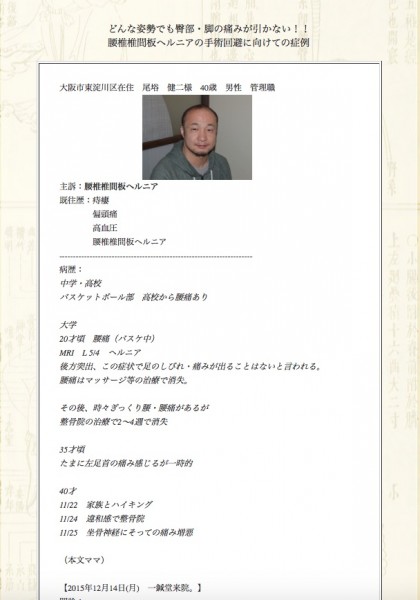 どんな姿勢でも臀部・脚の痛みが引かない！！
腰椎椎間板ヘルニアの手術回避に向けての症例
大阪市東淀川区在住　尾培　健二様　40歳　男性　管理職
主訴：腰椎椎間板ヘルニア
既往歴：痔瘻
偏頭痛
高血圧
腰椎椎間板ヘルニア
------------------------------------------------------------------------
病歴：
中学・高校
バスケットボール部　高校から腰痛あり
大学
20才頃　腰痛（バスケ中）
MRI　L 5/4　ヘルニア
後方突出、この症状で足のしびれ・痛みが出ることはないと言われる。
腰痛はマッサージ等の治療で消失。
その後、時々ぎっくり腰・腰痛があるが
整骨院の治療で2〜4週で消失
35才頃
たまに左足首の痛み感じるが一時的
40才
11/22　家族とハイキング
11/24　違和感で整骨院
11/25　坐骨神経にそっての痛み増悪
（本文ママ）
【2015年12月14日(月)　一鍼堂来院。】